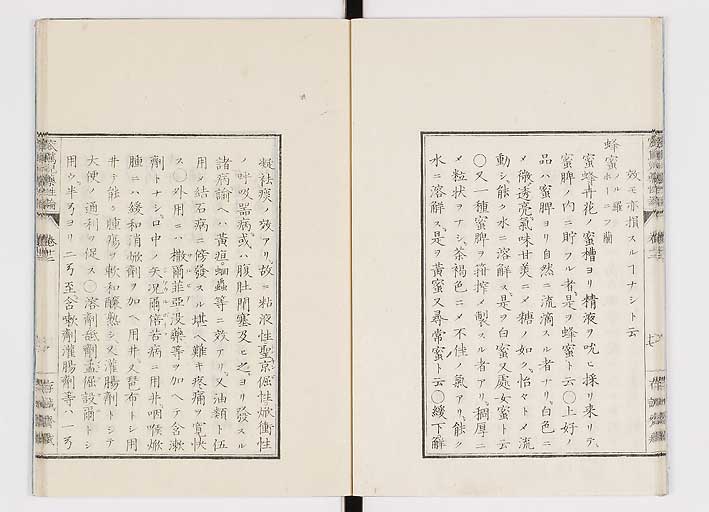 效モ亦損スルヿナシト云
蜂蜜 メル 羅 ホーニフ 蘭
蜜蜂卉花ノ蜜槽ヨリ精液ヲ吮ヒ採リ來リテ、
蜜脾ノ内ニ貯フル者是ヲ蜂蜜ト云〇上好ノ
品ハ蜜脾ヨリ自然ニ流滴スル者ナリ、白色ニ
メ微透亮氣味甘美ニメ糖ノ如ク、恰々トメ流
動シ、能ク水ニ溶解ス、是ヲ白蜜又處女蜜ト云
〇又一種蜜脾ヲ搾メ製スル者アリ、稠厚ニ
メ粒狀ヲナシ、茶褐色ニメ不佳ノ氣アリ、能ク
水ニ溶解ス、是ヲ黃蜜又尋常蜜ト云〇緩下解
凝祛痰ノ效アリ、故ニ粘液性聖京倔性焮衝性
ノ呼吸器病或ハ腹肚閉塞及ヒ之ヨリ發スル
諸病論ヘハ黃疸蛔蟲等ニ效アリ、又油類ト伍
用シ結石病ニ傍發スル堪ヘ難キ疼痛ヲ寛快
ス〇外用ニハ撒爾菲亞沒藥等ヲ加ヘテ含漱
劑トナシ、口中ノ失苟兒陪苦病ニ用井咽喉焮
腫ニハ緩和消焮劑ヲ加ヘ用井又琶布トシ用
井テ能ク腫瘍ヲ軟和釀熟シ、又灌腸劑トシテ
大便ノ通利ヲ促ス〇溶劑舐劑孟倔設爾トシ
用ウ半弓ヨリ二弓至、含嗽劑灌腸劑等ハ一弓